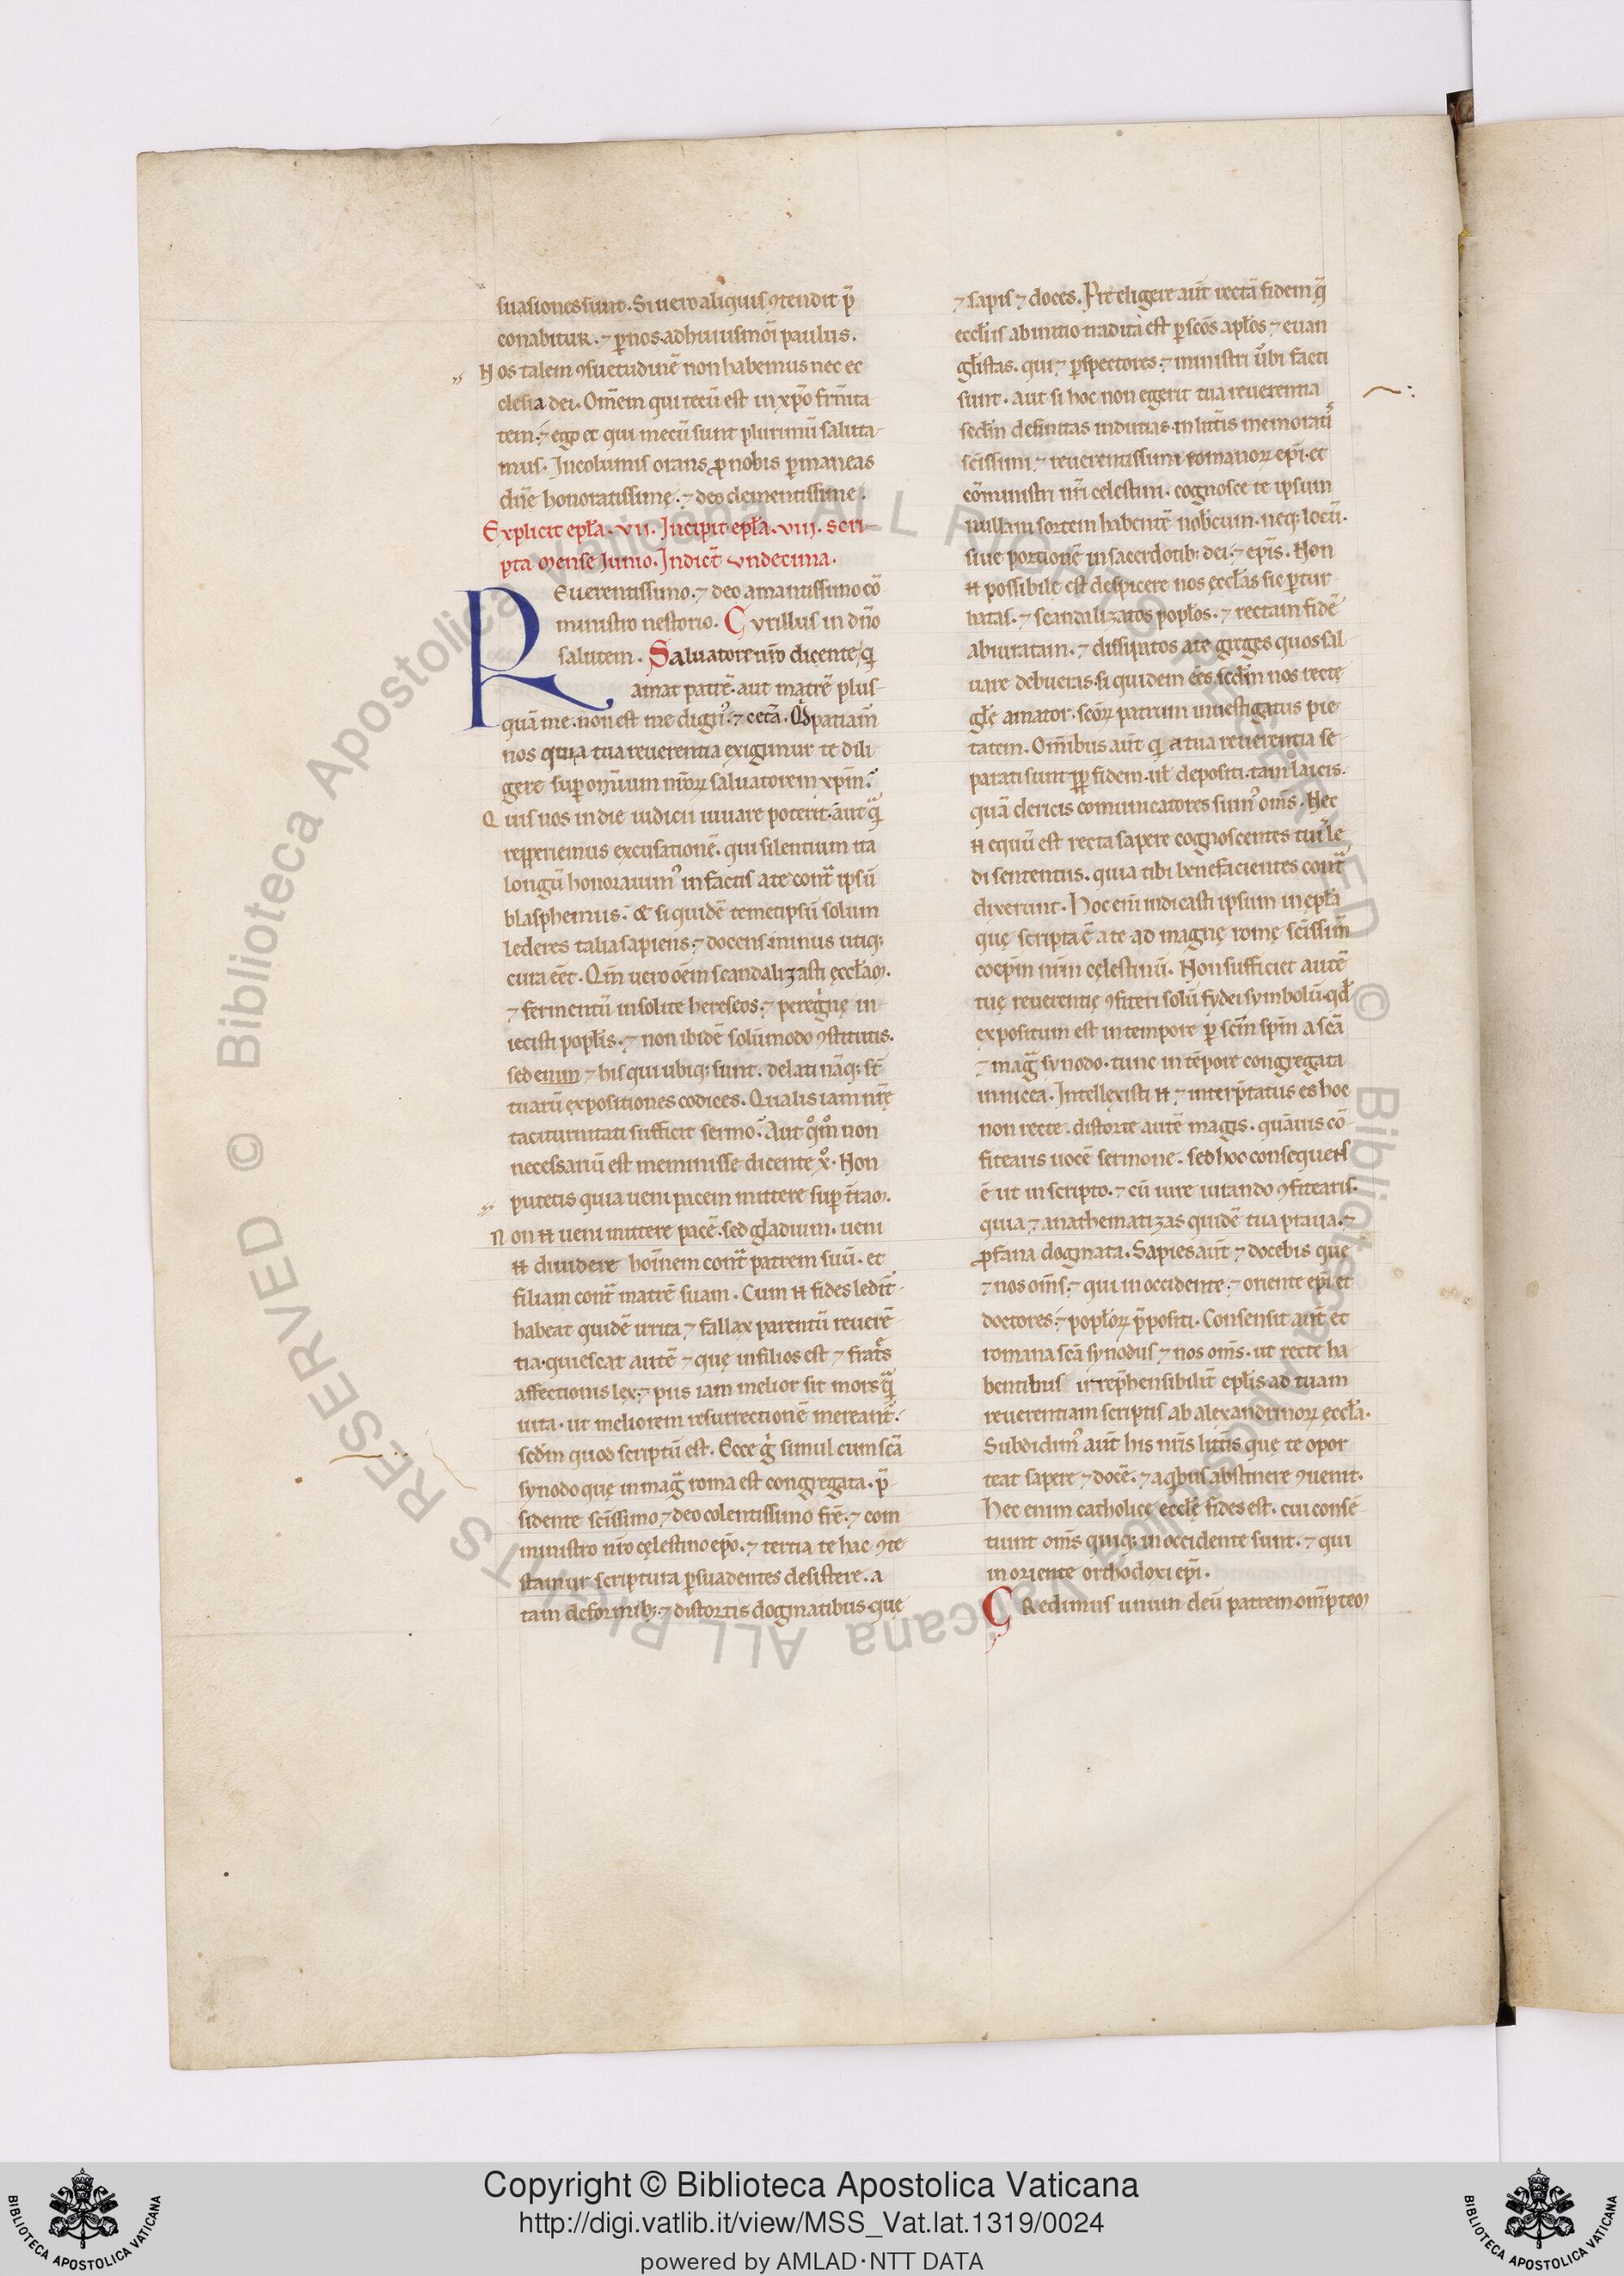 suasiones sunt. Si uero aliquis ꝯtendit p̄
conabitur. ⁊ ꝑ nos. ad huiusmōi paulus.
Nos talem ꝯsuetudinē non habemus nec ec
clesia dei. Om̄em qui tecū est in xp̄o frn̄ita
tem. ⁊ ego et qui mecū sunt plurimū saluta
mus. Incolumis orans ꝓ nobis ꝑmaneas
dn̄e honoratissimę. ⁊ deo clementissime.
Explicit epl̄a. vii. Incipit epl̄a. viii. scri-
pta mense Junio. Indict̄ undecima.
Reuerentissimo. ⁊ deo amantissimo cō
ministro nestorio. Cyrillus in dn̄o
salutem. Saluatore nr̄o dicente, q
amat patrē. aut matrē plus
quā me. non est me dign᾽. ⁊ cet̄a. Qd patiam̄
nos quia tua reuerentia exigimur te dili
gere suꝑ omnium nr̄oꝝ saluatorem xp̄m.
Quis nos in die iudicii iuuare poterit. aut q̄
repperiemus excusationē. qui silentium ita
longū honorauim᾽ in factis a te cont̄ ipsū
blasphemiis. & si quidē temetipsū solum
lederes talia sapiens. ⁊ docens minus utiq;
cura eēt. Qm̄ uero oēm scandalizasti ęccl̄am.
⁊ fermentū insolite hereseos. ⁊ peregͥnę in
iecisti popl̄is. ⁊ non ibidē solūmodo ꝯstitutis.
sed enim ⁊ his qui ubiq; sunt. delati nāq; st̄
tuarū expositiones codices. Qualis iam nr̄ę
taciturnitati sufficit sermo. Aut qͦm̊ non
necessariū est meminisse dicente xͦ. Non
putetis quia ueni pacem mittere suꝑ t̄ram.
Non n̄ ueni mittere pacē. sed gladium. ueni
n̄ diuidere hoīnem cont̄ patrem suū. et
filiam cont̄ matrē suam. Cum n̄ fides ledit̄
habeat quidē irrita. ⁊ fallax parentū reuerē
tia. quiescat autē ⁊ quę in filios est ⁊ frat̄s
affectionis lex. ⁊ piis iam melior sit mors q̄
uita. ut meliorem resurrectionē mereant̄.
sedm̄ quod scriptū est. Ecce gͥ simul cum scā
synodo quę in maḡ roma est congregata. p̄
sidente scīssimo ⁊ deo colentissimo frē. ⁊ com
ministro nr̄o cęlestino epō. ⁊ tertia te hac ꝯte
stamur scriptura ꝑsuadentes desistere. a
tam deformib; ⁊ distortis dogmatibus. quę
⁊ sapis ⁊ doces. P̄r eligere aut̄ rectā fidem q̄
eccl̄iis ab initio tradita est ꝑ scōs apl̄os ⁊ euan
gl̄istas. qui ⁊ ꝑspectores. ⁊ ministri ūbi facti
sunt. aut si hoc non egerit tua reuerentia
sedm̄ definitas indutias. in litt̄is memorati
scīssimi ⁊ reuerentissimi romanoꝝ epī. et
cōministri nr̄i celestini. cognosce te ipsum
nullam sortem habentē nob̄cum. neq; locū.
siue portionē in sacerdotib; dei. ⁊ epīs. Non
n̄ possibile est despicere nos ęccl̄as sic ꝑtur
batas. ⁊ scandalizatos popl̄os. ⁊ rectam fidē
abiuratam. ⁊ dissipatos a te greges quos sal
uare debueras. si quidem eēs sedm̄ nos rectę
gl̄ę amator. scōꝝ patrum inuestigatus pie
tatem. Om̄ibus aut̄ q a tua reuerentia se
parati sunt ꝓp̄ fidem. ul̄ depositi. tam laicis.
quā clericis comunicatores sum᾽ om̄s. Nec
n̄ equū est recta sapere cognoscentes tuis le
di sententiis. quia tibi benefacientes cont̄
dixerunt. Hoc eni indicasti ipsum in epl̄a
quę scripta ē a te ad magnę romę scīssim̄
coepm̄ nr̄m cęlestinū. Non sufficiet autē
tuę reuerentię ꝯfiteri solū fydei symbolū. qd̄
expositum est in tempore ꝑ scm̄ spm̄ a scā
⁊ maḡ synodo. tunc in tēpore congregata
in nicea. Intellexisti n̄ ⁊ interp̄tatus es hoc
non recte. distorte autē magis. quāuis cō
fitearis uocē sermone. sed hoc consequens
ē ut in scripto. ⁊ cū iure iurando ꝯfitearis.
quia ⁊ anathematizas quidē tua praua. ⁊
ꝓfana dogmata. Sapies aut̄ ⁊ docebis quę
⁊ nos om̄s. ⁊ qui in occidente. ⁊ oriente epī et
doctores. ⁊ popl̄oꝝ p̄positi. Consensit aut̄ et
romana scā synodus ⁊ nos om̄s. ut recte ha
bentibus irrep̄hensibilit̄ epl̄is ad tuam
reuerentiam scriptis ab alexandrinoꝝ ęccl̄a.
Subdidim᾽ aut̄ his nr̄is litt̄is quę te opor
teat sapere ⁊ docē. ⁊ a qͥbus abstinere ꝯuenit.
Hec enim catholicę eccl̄ę fides est. cui consē
tiunt om̄s quiq; in occidente sunt. ⁊ qui
in oriente orthodoxi epī.
Credimus unum deū patrem om̄ptem
Copyright © Biblioteca Apostolica Vaticana
http://digi.vatlib.it/view/MSS_Vat.lat.1319/0024
powered by AMLAD·NTT DATA